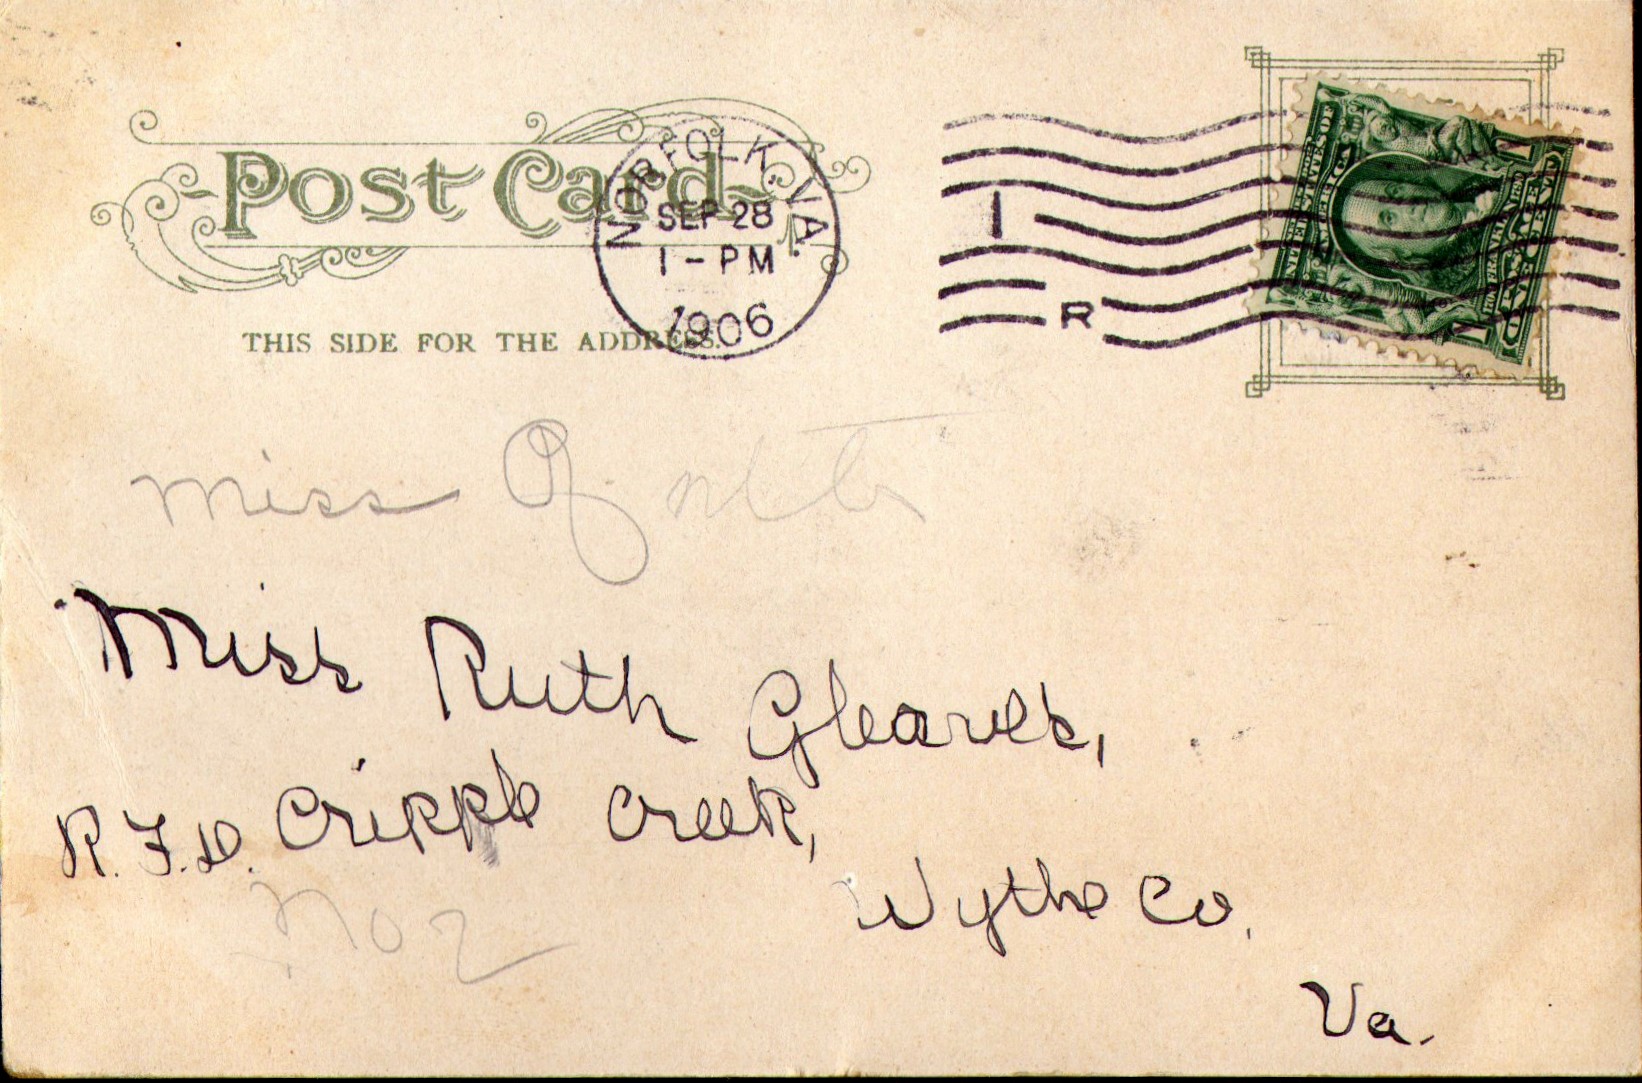 Post Card
THIS SIDE FOR THE ADDRESS.
NORFOLK, VA.
SEP 28
1 - PM
1906
1
R
Miss
Miss Ruth Gleaves,
R.F.D. Cripple Creek,
No 2
Wythe Co,
Va.